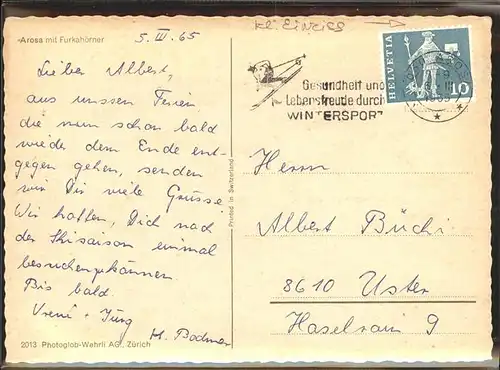 Arosa mit Furkahörner
5. III. 65
Lieber Albert,
aus unsern Ferien
die nun schon bald
wieder dem Ende ent-
gegen gehen, senden
wir Dir viele Grüsse
Wir hoffen, Dich nach
der Skisaison einmal
besuchen zu können.
Bis bald
Vreni + Jürg
M. Bodmer
2013 Photoglob-Wehrli AG., Zürich
Printed in Switzerland
kl. Einriss
Gesundheit und
Lebensfreude durch
WINTERSPORT
HELVETIA
10
Herrn
Albert Büchi
8610 Uster
Haselrain 9